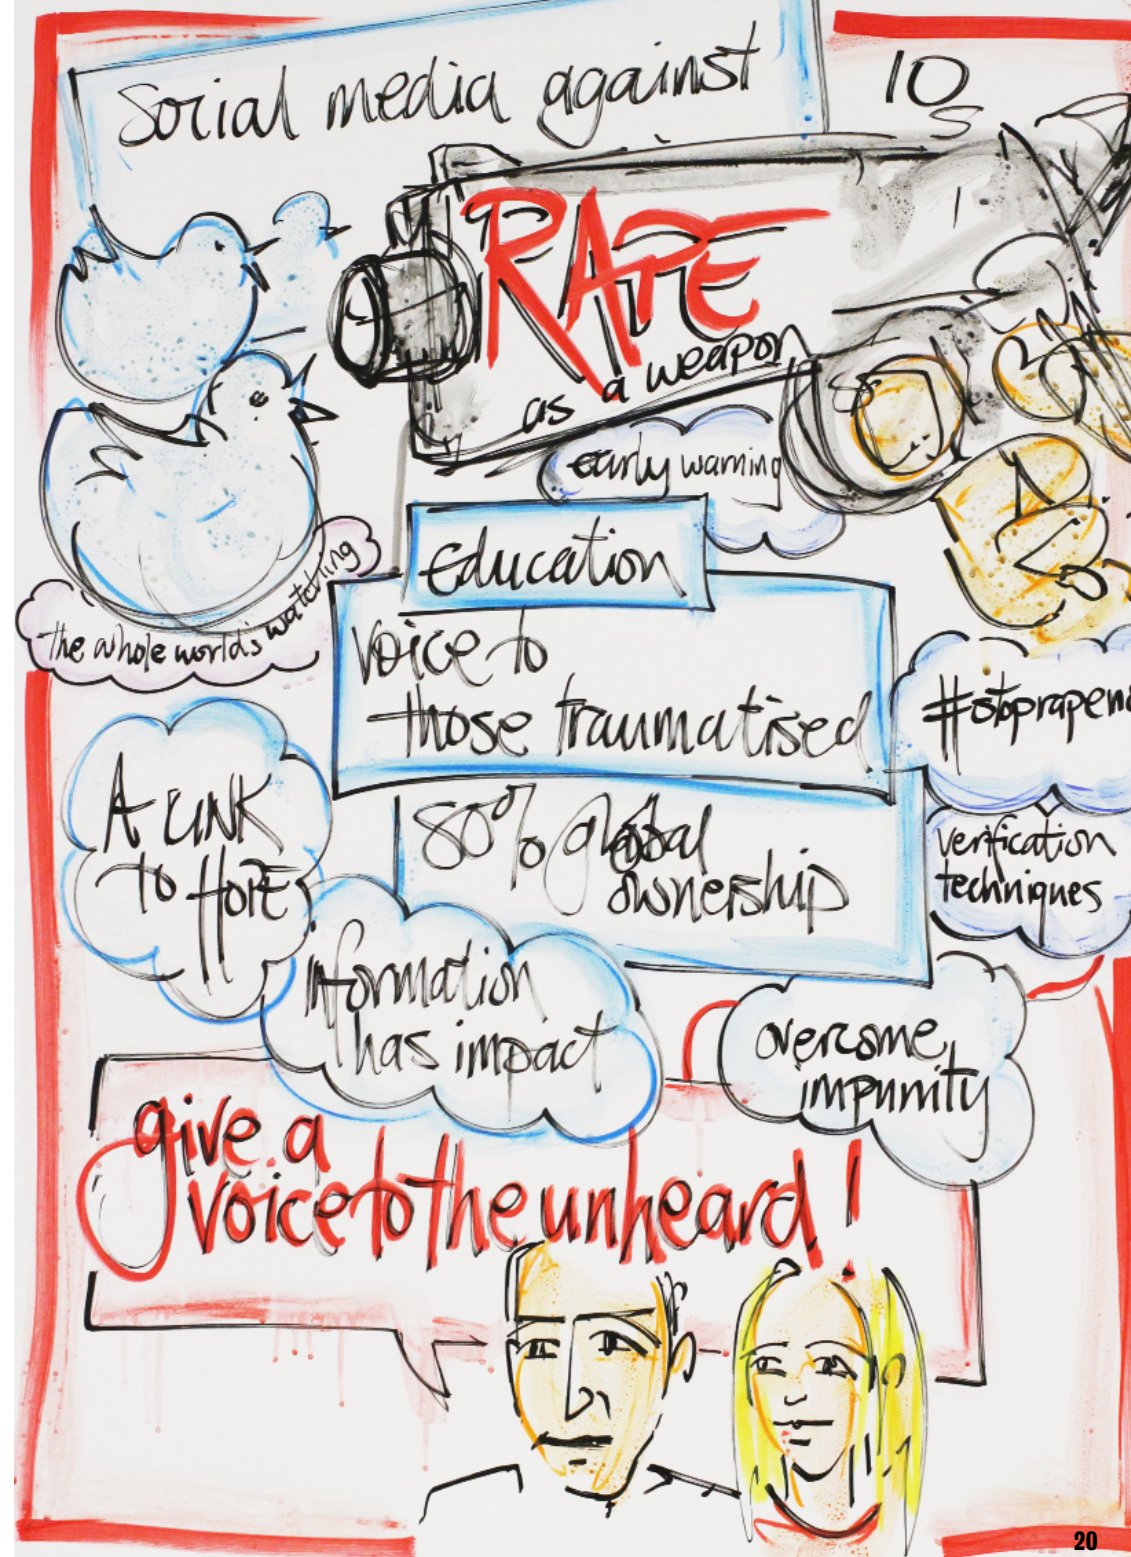 Social media against
10
RAPE
as a weapon
early warning
Education
the whole world's watching
voice to
those traumatised
#stoprapen
A LINK
to HOPE
80% global
ownership
verification
techniques
Information
has impact
overcome
impunity
give a
voice to the unheard!
20